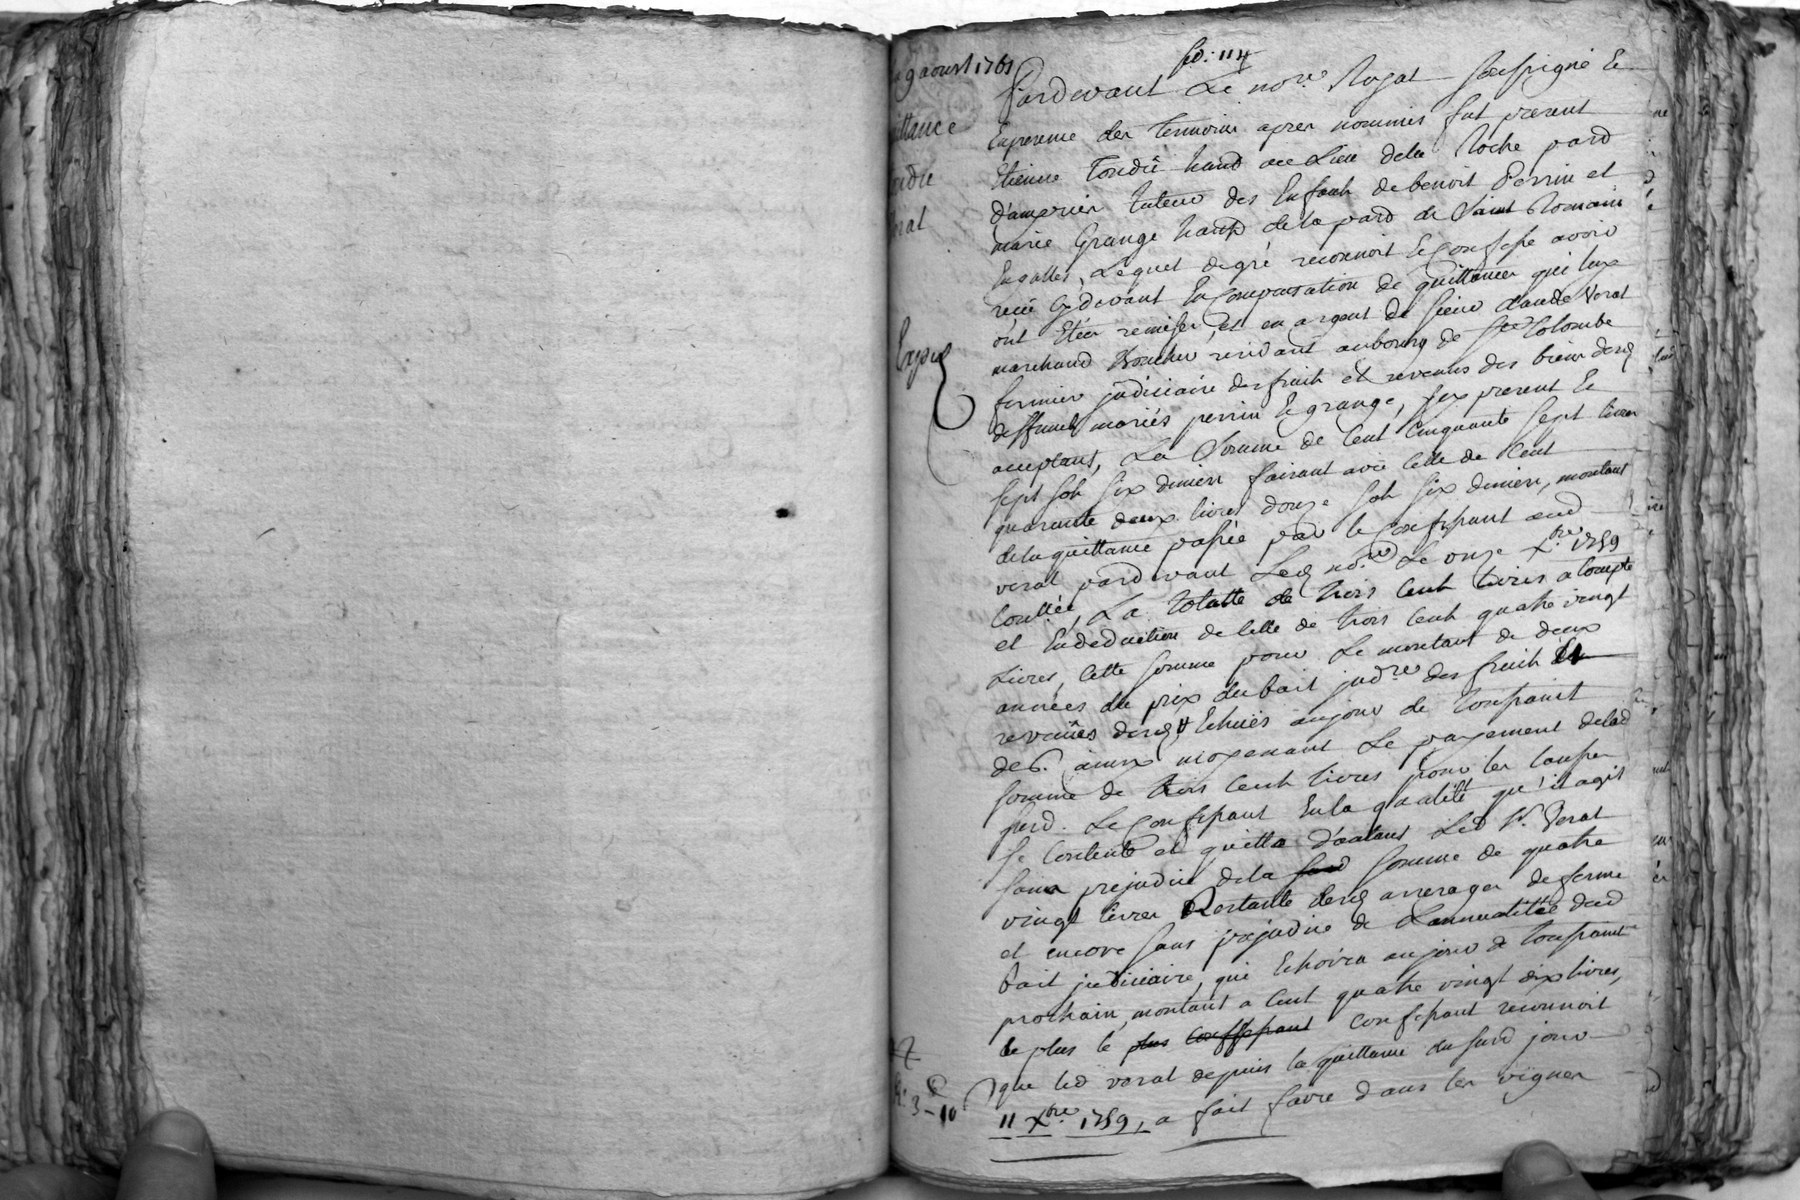 9 aoust 1761
fo: 114
Pardevant Le no.re Royal Soussigné Et
En presence des temoins apres nommés fut present
Etienne Tondü habt au Lieu dela Roche parr
d'ampuis tuteur des Enfants de benoit Perrin et
marie Grange habts dela parr de Saint Romain
Engalles, Lequel de gré reconnoit Et confesse avoir
reçu Cy devant En Compensation de quittances qui lux
ont Etées remises, et en argent de Sieur Claude Verat
marchand Boucher residant au bourg de Ste Colombe
fermier judiciaire des fruits et revenus des biens desd
deffunts mariés perrin Et grange, Sex present Et
acceptant, La Somme de Cent Cinquante Sept livres
Sept Sols Six deniers faisant avec Celle de Cent
quarante deux livres douze Sols Six deniers, montant
dela quittance passée par le Confessant aud
verat pardevant Led no.re Le onze Xbre 1759
Conllée, La totalle de trois Cents livres a Compte
et En deduction de Celle de trois Cents quatre vingt
Livres, Cette Somme pour Le montant de deux
années du prix du bail judre des fruits Et
revenus desd # Echües au jour de Toussaint
de6. année moyenant Le payement delad
Somme de trois Cents livres pour les Causes
surd. Le Confessant En la qualité qu'il agit
Se Contente et quitte d'autant Led Sr. Verat
Sans prejudice dela Somme de quatre
vingt livres Restante desd arrerages de ferme
et encore Sans prejudice de L'annualité dud
bail judiciaire, qui Echoira au jour de Toussaint
prochain, montant a Cent quatre vingt dix livres,
de plus le plus Conffessant Confessant reconnoit
que Led verat depuis la quittance du susd jour
11 Xbre 1759, a fait faire dans les vignes
ittance
ondu
erat
Expié
#
3-10